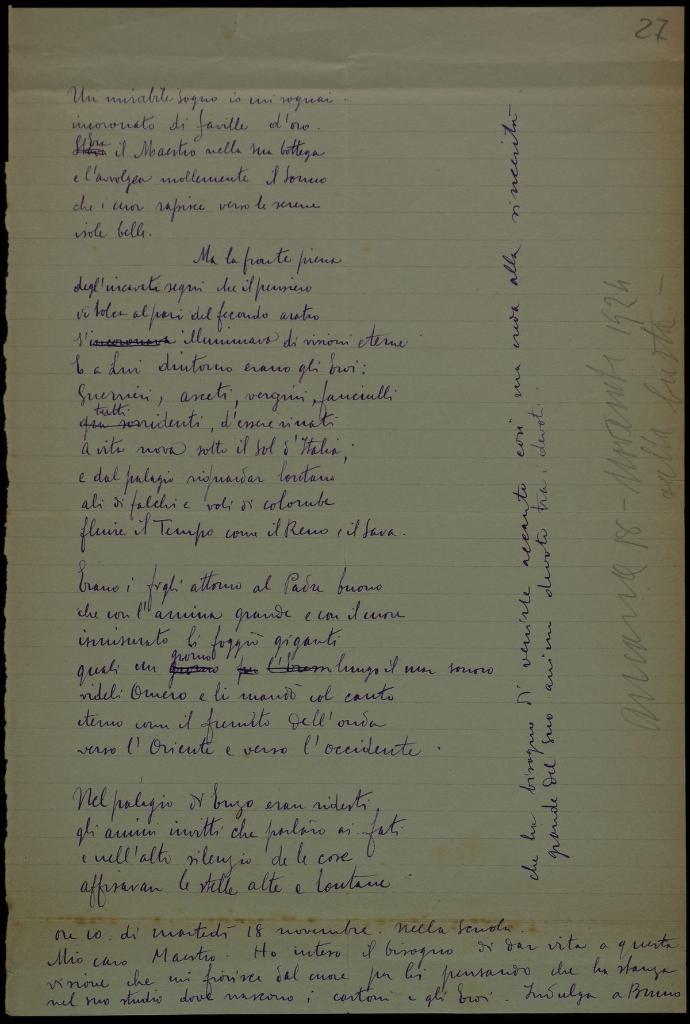 27
Un mirabile sogno io mi sognai
incoronato di faville d'oro.
Era il Maestro nella sua bottega
e l'avvolgea mollemente il Sonno
che i cuor rapisce verso le serene
isole belle.
Ma la fronte piena
degl'incavati segni che il pensiero
vi solca al pari del fecondo aratro
s'incoronava illuminava di visioni eterne
E a Lui dintorno erano gli Eroi:
Guerrieri, asceti, vergini, fanciulli
tutti
sorridenti, d'essere rinati
a vita nova sotto il Sol d'Italia,
e dal palagio riguardar lontano
ali di falchi e voli di colombe
fluire il Tempo come il Reno e il Sava.
Erano i figli attorno al Padre buono
che con l'anima grande e con il cuore
ismisurato li foggiò giganti
giorno
quali un giorno per lungo il mar sonoro
videli Omero e li mandò col canto
eterno come il fremito dell'onda
verso l'Oriente e verso l'Occidente.
Nel palagio di Enzo eran ridesti
gli animi invitti che parlaro ai fati
e nell'alto silenzio de le cose
affisavan le stelle alte e lontane
ore 10. di martedì 18 novembre. nella Scuola.
Mio caro Maestro. Ho inteso il bisogno di dar vita a questa
visione che mi fiorisce dal cuore per Lei pensando che ha stanza
nel suo studio dove nascono i cartoni e gli Eroi. Indulga a Bruno
che ha bisogno di venirle accanto così ma creda alla sincerità
grande del suo animo devoto tra i devoti.
18 - novembre 1924